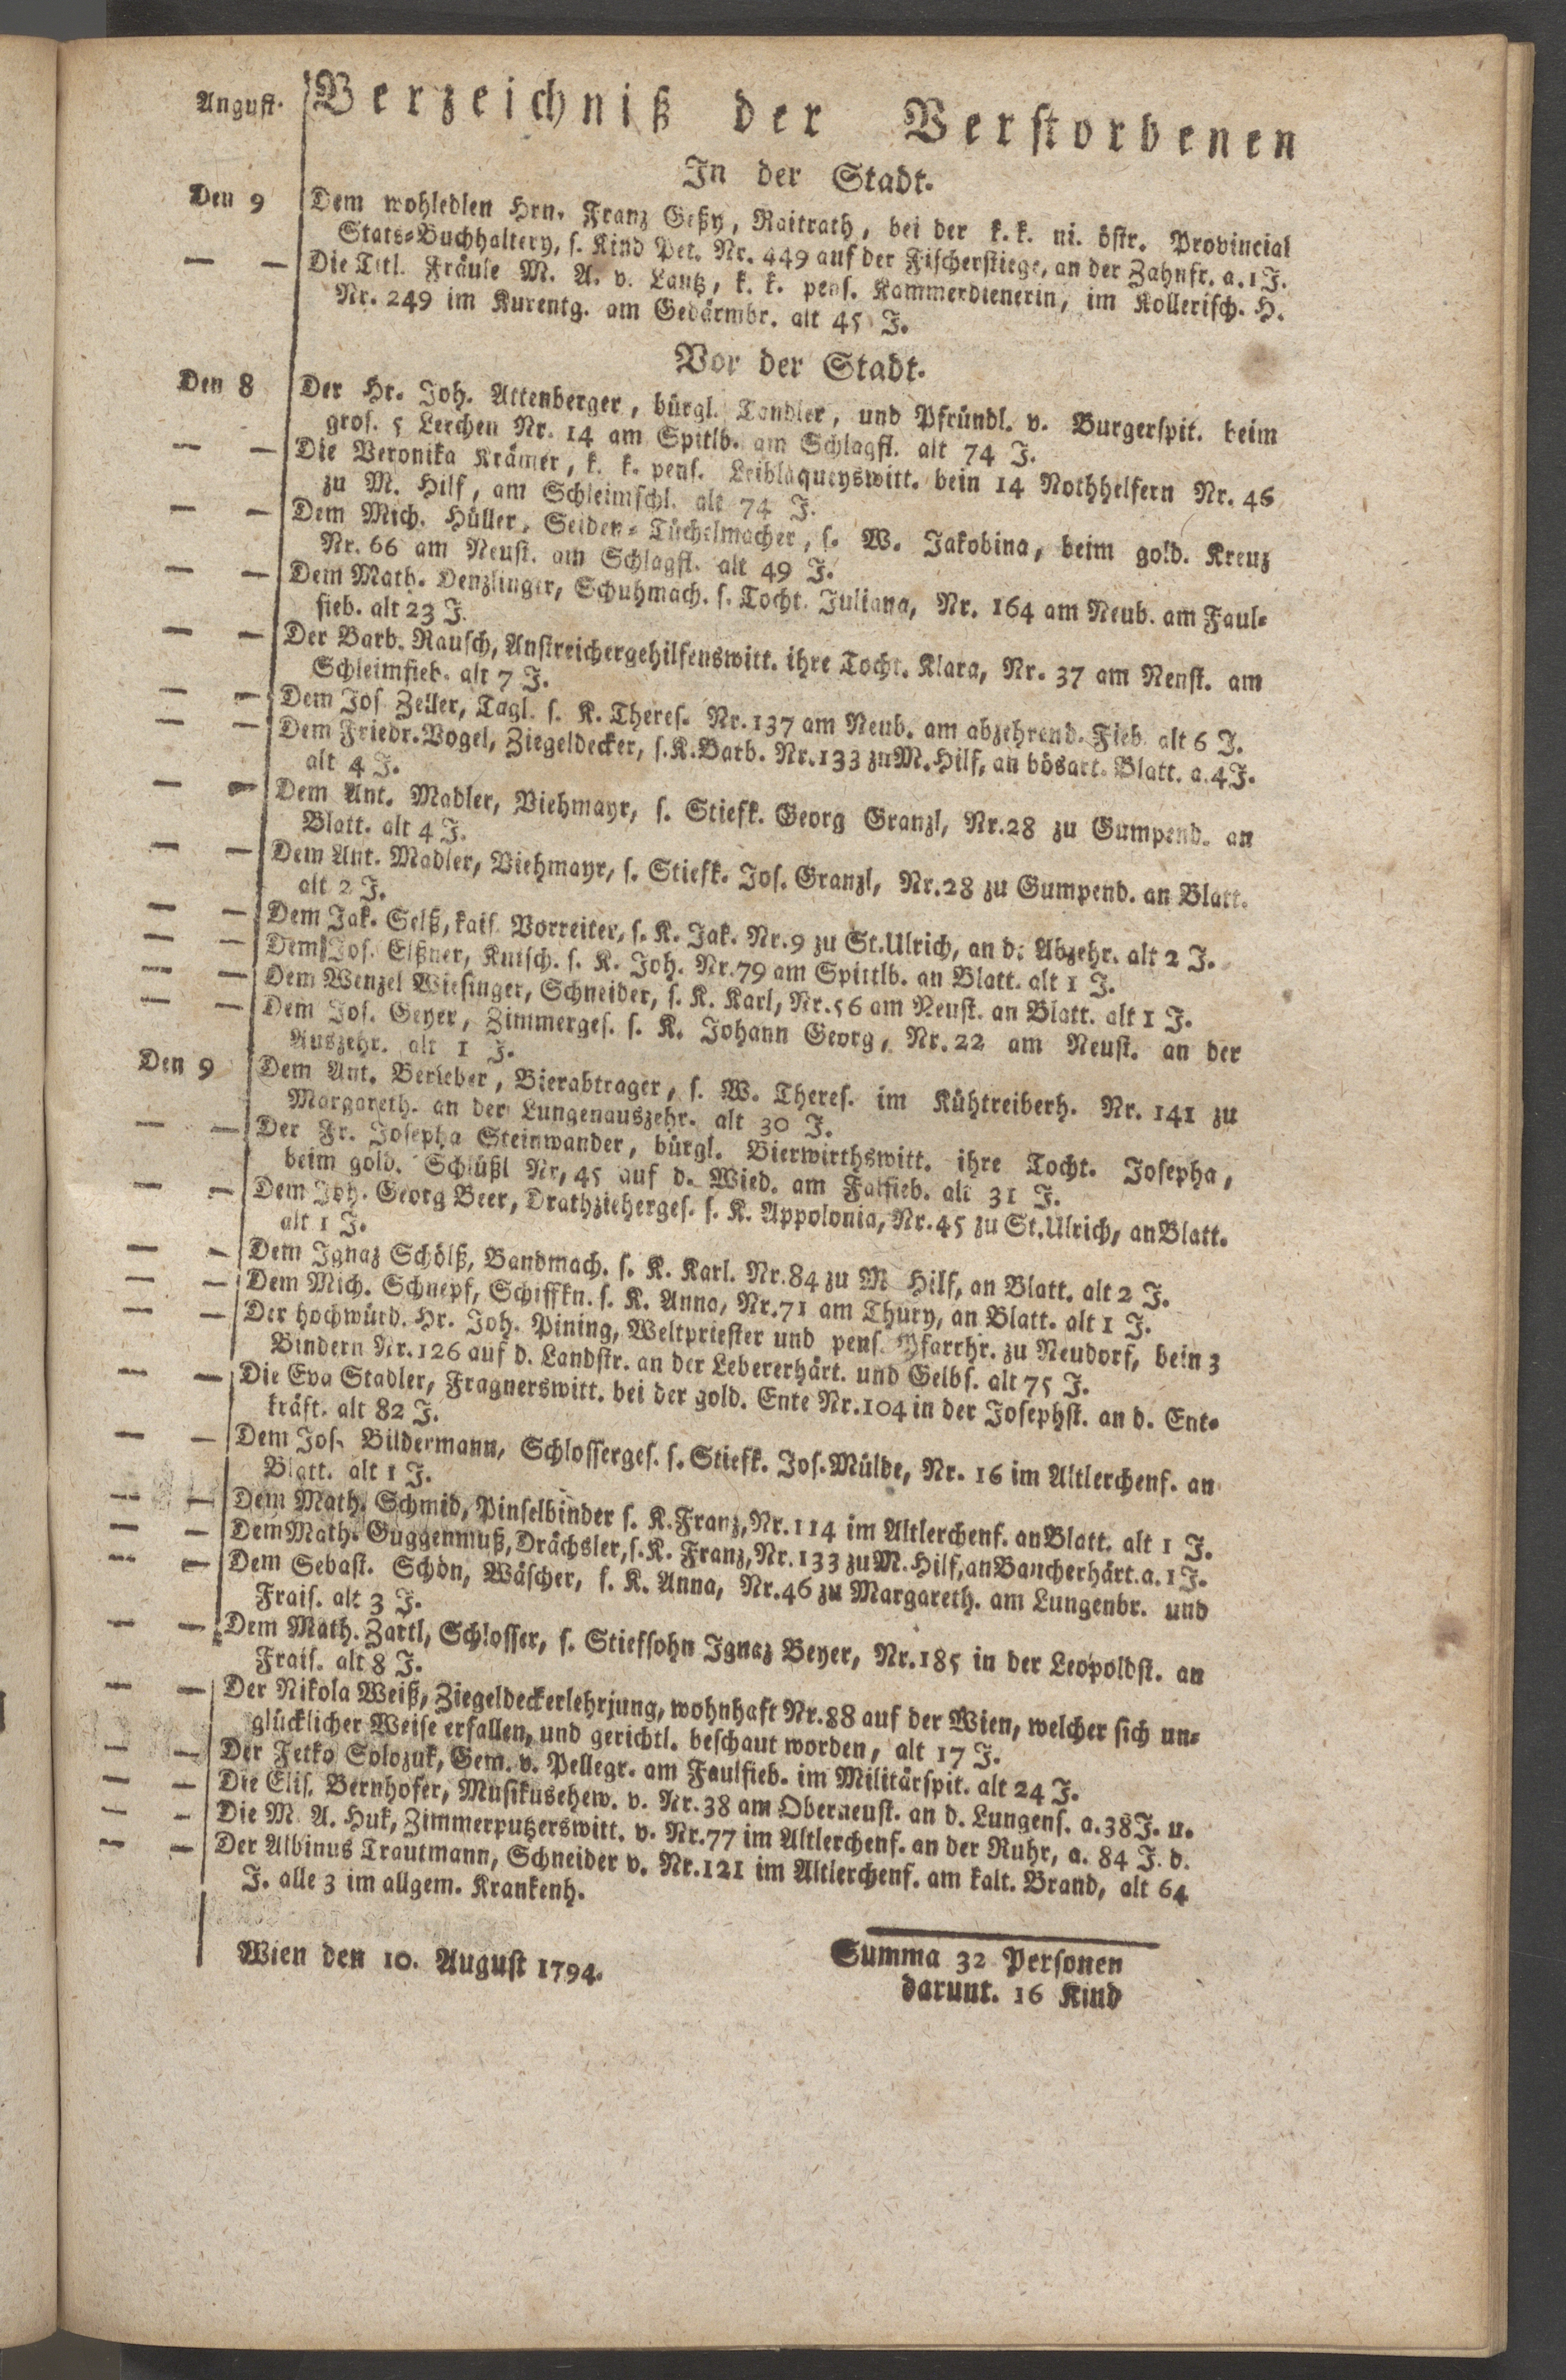 August. Verzeichniß der Verstorbenen
In der Stadt.
Den 9 Dem wohledlen Hrn. Franz Geßy, Raitrath, bei der k. k. ni. östr. Provincial
Stats-Buchhaltery, s. Kind Pet. Nr. 449 auf der Fischerstiege, an der Zahnfr. a. 1 J.
— — Die Titl. Fräule M. A. v. Lautz, k. k. pens. Kammerdienerin, im Kollerisch. H.
Nr. 249 im Kurentg. am Gedärmbr. alt 45 J.
Vor der Stadt.
Den 8 Der Hr. Joh. Attenberger, bürgl. Tandler, und Pfründl. v. Burgerspit. beim
gros. 5 Lerchen Nr. 14 am Spitlb. am Schlagfl. alt 74 J.
— — Die Veronika Krämer, k. k. pens. Leiblaqueyswitt. bein 14 Nothhelfern Nr. 46
zu M. Hilf, am Schleimschl. alt 74 J.
— — Dem Mich. Hüller, Seiden-Tüchelmacher, s. W. Jakobina, beim gold. Kreuz
Nr. 66 am Neust. am Schlagfl. alt 49 J.
— — Dem Math. Denzlinger, Schuhmach. s. Tocht. Juliana, Nr. 164 am Neub. am Faul-
fieb. alt 23 J.
— — Der Barb. Rausch, Anstreichergehilfenswitt. ihre Tocht. Klara, Nr. 37 am Neust. am
Schleimfieb. alt 7 J.
— — Dem Jos. Zeller, Tagl. s. K. Theres. Nr. 137 am Neub. am abzehrend. Fieb. alt 6 J.
— — Dem Friedr. Vogel, Ziegeldecker, s. K. Barb. Nr. 133 zu M. Hilf, an bösart. Blatt. a. 4 J.
alt 4 J.
— — Dem Ant. Madler, Viehmayr, s. Stiefk. Georg Granzl, Nr. 28 zu Gumpend. an
Blatt. alt 4 J.
— — Dem Ant. Madler, Viehmayr, s. Stiefk. Jos. Granzl, Nr. 28 zu Gumpend. an Blatt.
alt 2 J.
— — Dem Jak. Selß, kais. Vorreiter, s. K. Jak. Nr. 9 zu St. Ulrich, an d. Abzehr. alt 2 J.
— — Dem Jos. Elßner, Kutsch. s. K. Joh. Nr. 79 am Spittlb. an Blatt. alt 1 J.
— — Dem Wenzel Wiesinger, Schneider, s. K. Karl, Nr. 56 am Neust. an Blatt. alt 1 J.
— — Dem Jos. Geyer, Zimmerges. s. K. Johann Georg, Nr. 22 am Neust. an der
Auszehr. alt 1 J.
Den 9 Dem Ant. Berieber, Bierabtrager, s. W. Theres. im Kühtreiberh. Nr. 141 zu
Margareth. an der Lungenauszehr. alt 30 J.
— — Der Fr. Josepha Steinwander, bürgl. Bierwirthswitt. ihre Tocht. Josepha,
beim gold. Schlüßl Nr, 45 auf d. Wied. am Falfieb. alt 31 J.
— — Dem Joh. Georg Beer, Drathzieherges. s. K. Appolonia, Nr. 45 zu St. Ulrich, an Blatt.
alt 1 J.
— — Dem Ignaz Schölß, Bandmach. s. K. Karl. Nr. 84 zu M Hilf, an Blatt. alt 2 J.
— — Dem Mich. Schnepf, Schiffkn. s. K. Anna, Nr. 71 am Thury, an Blatt. alt 1 J.
— — Der hochwürd. Hr. Joh. Pining, Weltpriester und pens. Pfarrhr. zu Neudorf, bein 3
Bindern Nr. 126 auf d. Landstr. an der Lebererhärt. und Gelbs. alt 75 J.
— — Die Eva Stadler, Fragnerswitt. bei der gold. Ente Nr. 104 in der Josephst. an d. Ent-
kräft. alt 82 J.
— — Dem Jos. Bildermann, Schlosserges. s. Stiefk. Jos. Mülde, Nr. 16 im Altlerchenf. an
Blatt. alt 1 J.
— — Dem Math. Schmid, Pinselbinder s. K. Franz, Nr. 114 im Altlerchenf. an Blatt. alt 1 J.
— — Dem Math. Guggenmuß, Drächsler, s. K. Franz, Nr. 133 zu M. Hilf, an Baucherhärt. a. 1 J.
— — Dem Sebast. Schön, Wäscher, s. K. Anna, Nr. 46 zu Margareth. am Lungenbr. und
Frais. alt 3 J.
— — Dem Math. Zartl, Schlosser, s. Stiefsohn Ignaz Beyer, Nr. 185 in der Leopoldst. an
Frais. alt 8 J.
— — Der Nikola Weiß, Ziegeldeckerlehrjung, wohnhaft Nr. 88 auf der Wien, welcher sich un-
glücklicher Weise erfallen, und gerichtl. beschaut worden, alt 17 J.
— — Der Fetko Solozuk, Gem. v. Pellegr. am Faulfieb. im Militärspit. alt 24 J.
— — Die Elis. Bernhofer, Musikusehew. v. Nr. 38 am Oberneust. an d. Lungens. a. 38 J. u.
— — Die M. A. Huk, Zimmerputzerswitt. v. Nr. 77 im Altlerchenf. an der Ruhr, a. 84 J. d.
— — Der Albinus Trautmann, Schneider v. Nr. 121 im Altlerchenf. am kalt. Brand, alt 64
J. alle 3 im allgem. Krankenh.
Wien den 10. August 1794. Summa 32 Personen
darunt. 16 Kind